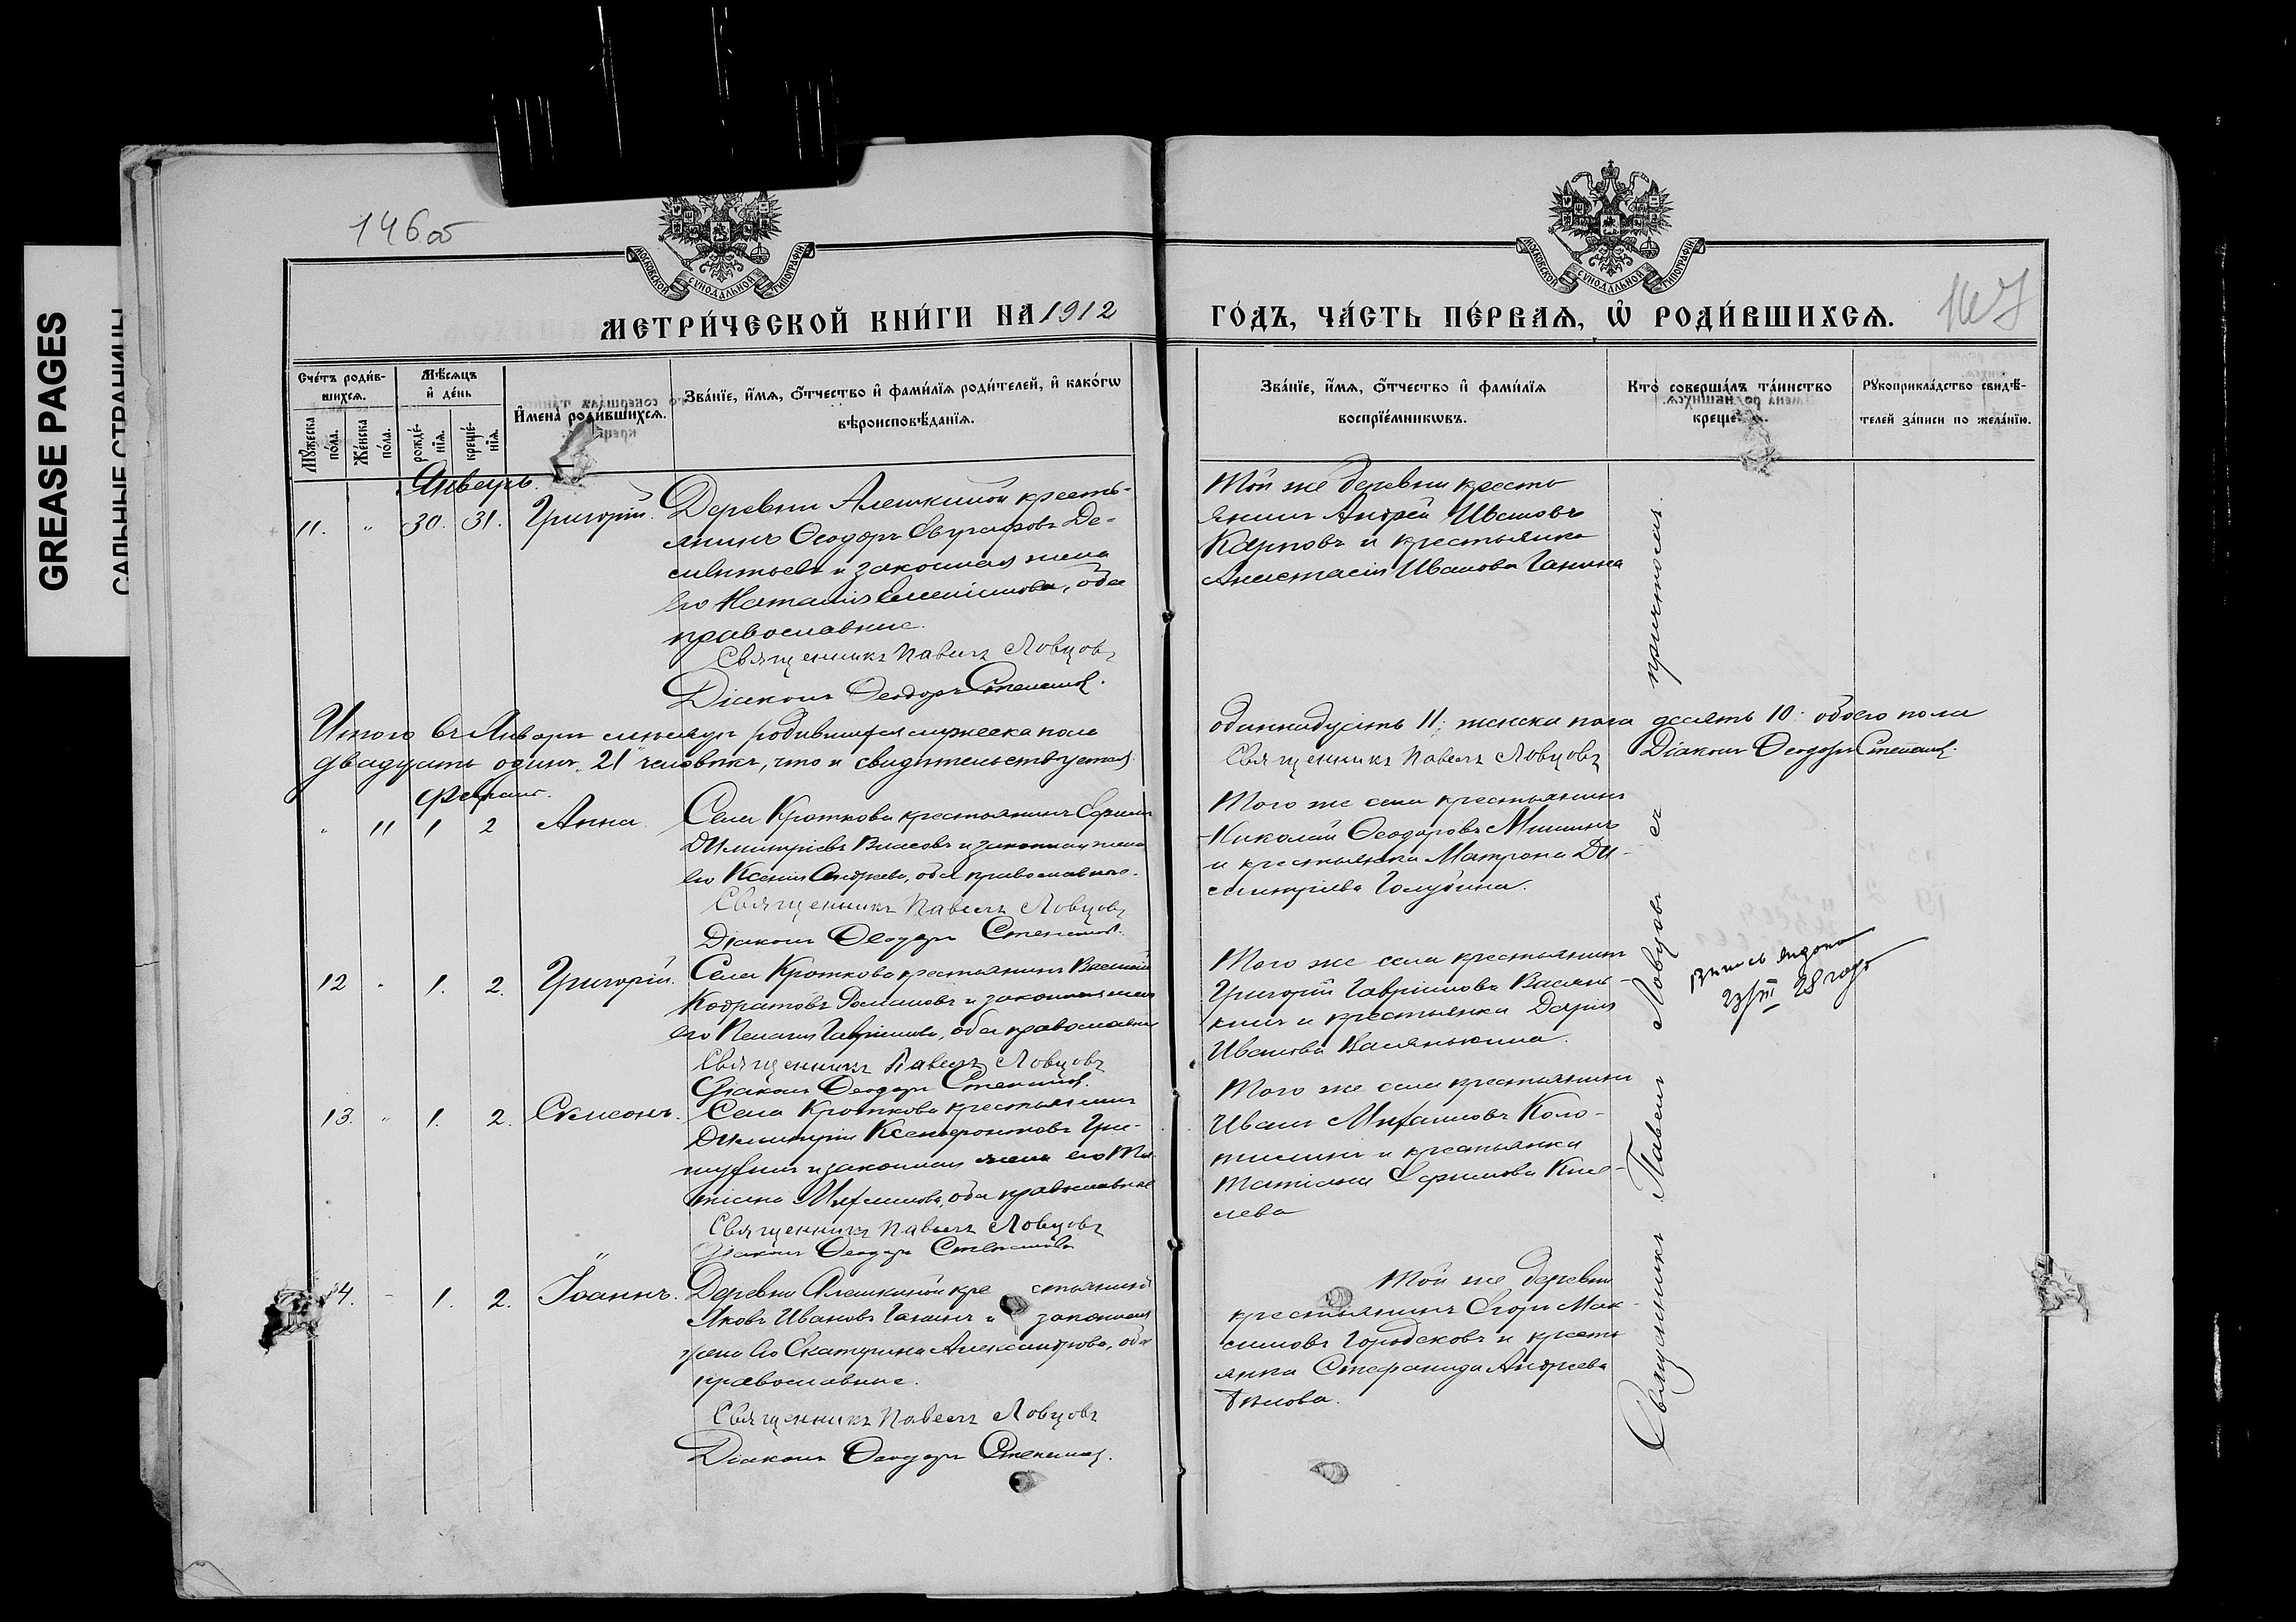 GREASE PAGES
САЛЬНЫЕ СТРАНИЦЫ
146об
147
МОСКОВСКОЙ СУНОДАЛЬНОЙ ТИПОГРАФІИ
МОСКОВСКОЙ СУНОДАЛЬНОЙ ТИПОГРАФІИ
МЕТРИ́ЧЕСКОЙ КНИ́ГИ НА 1912
ГО́ДЪ, ЧА́СТЬ ПЕ́РВАѦ, Ѡ҆ РОДИ́ВШИХСѦ.
Сче́тъ роди́в-
шихсѧ.
Мѣ́сѧцъ
и҆ де́нь
Мꙋ́жеска по́ла.
Же́нска по́ла.
рожде́-нїѧ.
креще́-нїѧ.
И҆мена̀ роди́вшихсѧ.
Зва́нїе, и҆́мѧ, ѻ҆́тчество и҆ фами́лїѧ роди́телей, и҆ како́гѡ
вѣроисповѣ́данїѧ.
Зва́нїе, и҆́мѧ, ѻ҆́тчество и҆ фами́лїѧ
воспрїе́мникѡвъ.
Кто̀ соверша́лъ та́инство
креще́нїѧ.
Рꙋкоприкла́дство свидѣ́-
телей за́писи по жела́нїю.
Январь.
11. " 30. 31. Григорій.
Деревни Алешкиной кресть-
янинъ Ѳеодоръ Евграфовъ Де-
ментьевъ и законная жена
его Наталія, оба
православные.
Священникъ Павелъ Ловцовъ
Діаконъ Ѳеодоръ Степановъ.
Той же деревни кресть
янинъ Андрей Ивановъ
Карповъ и крестьянка
Анастасія Иванова Ганина
Итого въ Январѣ мѣсяцѣ родившихся мужеска пола
одиннадцать 11; женска пола десять 10; обоего пола
двадцать одинъ "21" человѣкъ, что и свидѣтельствуется
Священникъ Павелъ Ловцовъ Діаконъ Ѳеодоръ Степановъ.
Февраль.
" 11 1 2 Анна.
Села Кроткова крестьянинъ
Димитріевъ Власовъ и законная жена
его Ксенія Андреева, оба православные.
Священникъ Павелъ Ловцовъ
Діаконъ Ѳеодоръ Степановъ.
Того же села крестьянинъ
Николай Ѳеодоровъ Мишинъ
и крестьянка Матрона Ди-
митріева Голубина.
12 " 1. 2. Григорій.
Села Кроткова крестьянинъ Василій
Кодратовъ Романовъ и законная жена
его Пелагія Гавріилова, оба православные
Священникъ Павелъ Ловцовъ
Діаконъ Ѳеодоръ Степановъ.
Того же села крестьянинъ
Григорій Гавріиловъ Васянь-
кинъ и крестьянка Дарія
Иванова
запись видана
23/III 28 года
13. " 1. 2. Симеонъ.
Села Кроткова крестьянинъ
Димитрій Ксенофонтовъ Гри-
и законная жена его Та-
тіана Михаилова, оба православные
Священникъ Павелъ Ловцовъ
Діаконъ Ѳеодоръ Степановъ
Того же села крестьянинъ
Иванъ Михаиловъ Коло-
и крестьянка
Татіана Кисе-
лева
14. " 1. 2. Іоаннъ.
Деревни Алешкиной крестьянинъ
Яковъ Ивановъ Ганинъ и законная
жена его Екатерина Александрова, оба
православные.
Священникъ Павелъ Ловцовъ
Діаконъ Ѳеодоръ Степановъ.
Той же деревни
крестьянинъ Егоръ Мак-
симовъ Городсковъ и кресть
янка Стефанида Андреева
Бѣлова.
Священникъ Павелъ Ловцовъ съ причтомъ.